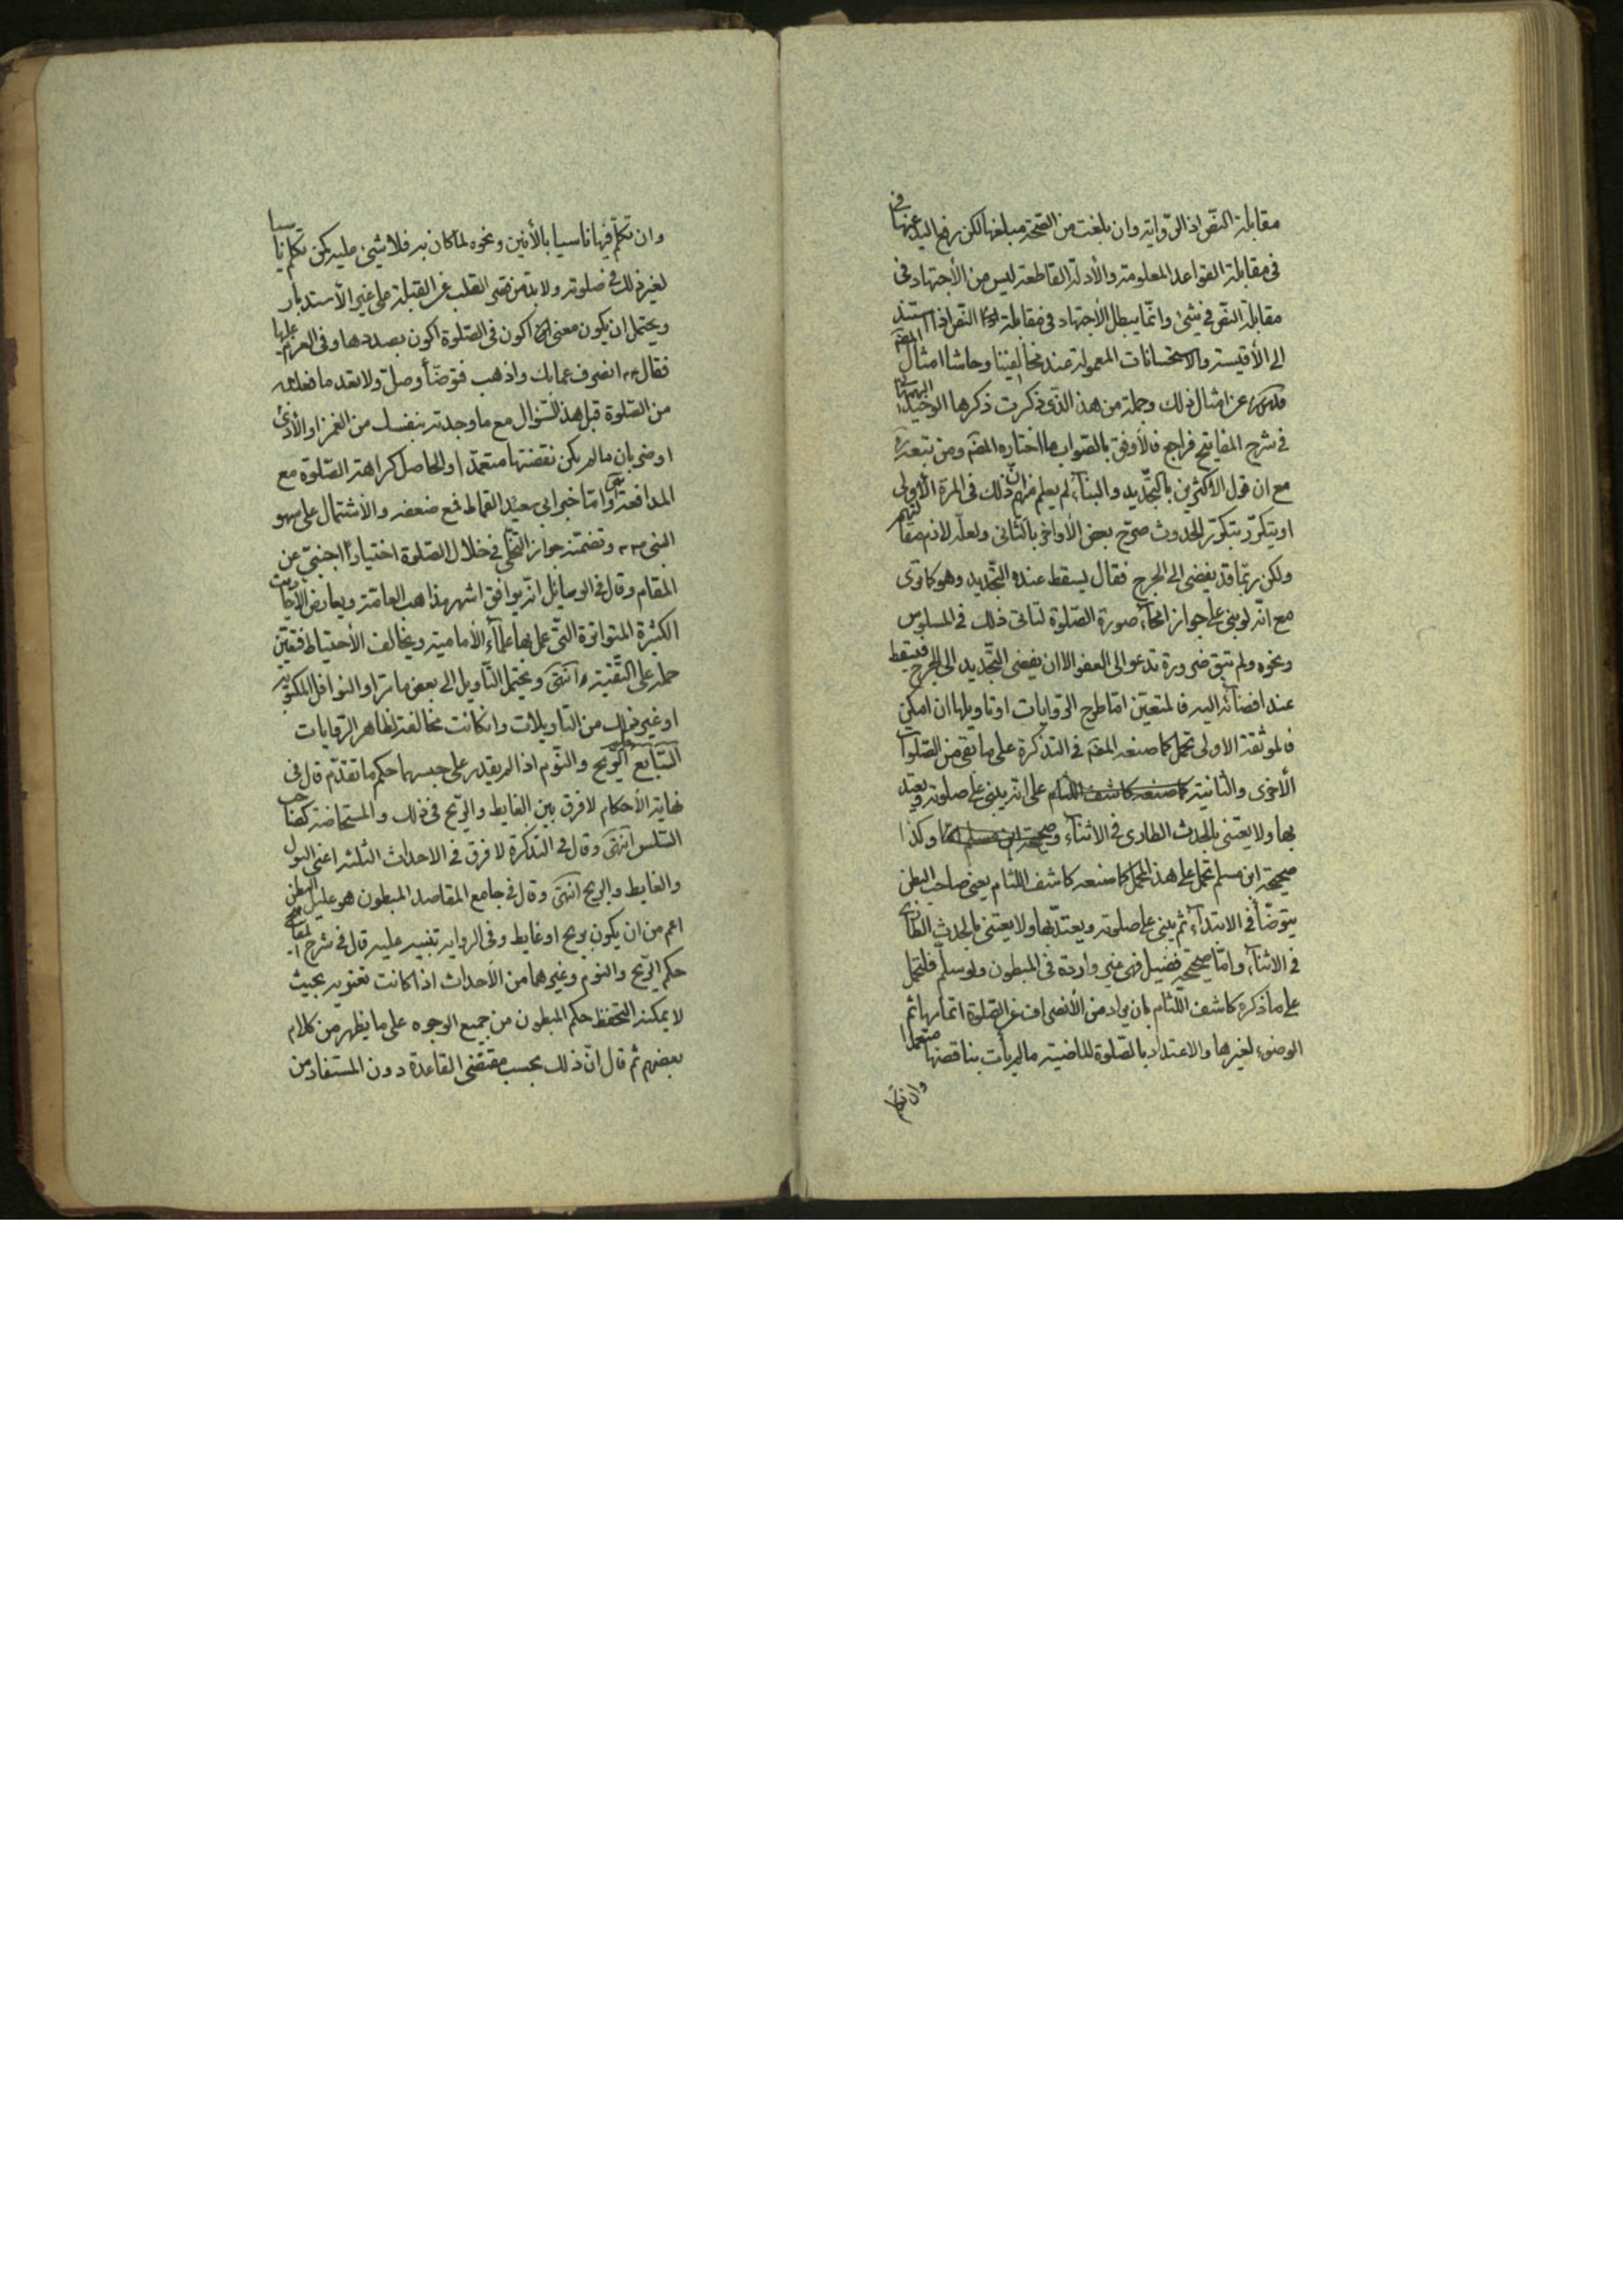 مقابلة النّص اذ الرّواية وان بلغت من الصّحة مبلغها لكن رفع اليد عنها
فى مقابلة القواعد المعلومة والأدلة القاطعة ليس من الأجتهاد فى
مقابلة النّص فى شئ وانّما يبطل الأجتهاد فى مقابلة النّص اذا استند
الى الأقيسة والاستحسانات المعمولة عند مخالفينا وحاشا امثال المصّ
قدس سره عن امثال ذلك وجملة من هذا الذّى ذكرت ذكرها الوحيد البهبهانى
فى شرح المفاتيح فراجع فالأوفق بالصّواب ما اختاره المصّ ومن تبعه
مع ان قول الأكثرين بالتّجديد والبناء لم يعلم منهم انّ ذلك فى المرة الأولى
او يتكرّر بتكرّر الحدوث صرّح بعض الأواخر بالثانى ولعلّه لازم مقالتهم
ولكن ربّما قد يفضى الى الحرج فقال يسقط عنده التّجديد وهو كما ترى
مع انّه لو بنى على جواز امحاء صورة الصّلوة لتاتى ذلك فى المسلوس
ونحوه ولم تبق ضرورة تدعو الى العفو الا ان يفضى التّجديد الى الحرج فيسقط
عند افضائه اليه فالمتعيّن امّا طرح الرّوايات او تاويلها ان امكن
فالموثقة الاولى تحمل كما صنعه المصّ فى التذكرة على ما بقى من الصّلوات
الأخرى والثانية كما صنعه كاشف اللثام على انّه يبنى على صلوته ويعتد
بها ولا يعتنى بالحدث الطارى فى الاثناء وصحيحة ابن مسلم وكذا
صحيحة ابن مسلم تحمل على هذا المحمل كما صنعه كاشف اللثام يعنى صاحب البطن
يتوضّأ فى الابتداء ثم يبنى على صلوته ويعتدّ بها ولا يعتنى بالحدث الطارى
فى الاثناء وامّا صحيحة فضيل فهى غير واردة فى المبطون ولو سلّم فلتحمل
على ما ذكره كاشف اللّثام بان يراد من الأنصراف عن الصّلوة اتمامها ثم
الوضوء لغيرها والاعتداد بالصّلوة الماضية ما لم يأت بناقضها متعمّدا
وان تكلّم
وان تكلّم فيها ناسيا بالأنين ونحوه لما كان به فلا شئ عليه كمن تكلم ناسيا
لغير ذلك فى صلوته ولا بد من قصر القلب عن القبلة على غير الأستدبار
ويحتمل ان يكون معنى اكون فى الصّلوة اكون بصددها وفى العزم عليها
فقال انصرف عمابك واذهب فتوضّأ وصلّ ولا تعد ما فعلته
من الصّلوة قبل هذا السّؤال مع ما وجدته بنفسك من الغمز او الأذى
او ضربان ما لم يكن نقضتها متعمّدا والحاصل كراهة الصّلوة مع
المدافعة وامّا خبر ابى سعيد القماط فمع ضعفه والأشتمال على سهو
النبى وتضمّنه جواز التخلّى فى خلال الصّلوة اختيارا اجنبىّ عن
المقام وقال فى الوسائل انّه يوافق اشهر مذاهب العامّة ويعارض الأحاديث
الكثيرة المتواترة التى عمل بها علماء الأماميّة ويخالف الأحتياط فتعيّن
حمله على التّقيّة انتهى ويحتمل التّأويل الى بعض ما مرّ او النوافل المكتوبة
او غير ذلك من التاويلات وان كانت مخالفة لظاهر الرّوايات
السّابع الرّيح والنّوم اذا لم يقدر على حبسهما حكم ما تقدّم قال فى
نهاية الأحكام لا فرق بين الغايط والرّيح فى ذلك والمستحاضة كصاحب
السّلس انتهى وقال فى التذكرة لا فرق فى الاحداث الثلثة اعنى البول
والغايط والريح انتهى وقال فى جامع المقاصد المبطون هو عليل البطن
اعم من ان يكون بريح او غايط وفى الرواية تنبيه عليه قال فى شرح المفاتيح
حكم الرّيح والنوم وغيرهما من الأحداث اذا كانت تعتوره بحيث
لا يمكنه التحفّظ حكم المبطون من جميع الوجوه على ما يظهر من كلام
بعضهم ثم قال انّ ذلك بحسب مقتضى القاعدة دون المستفاد من